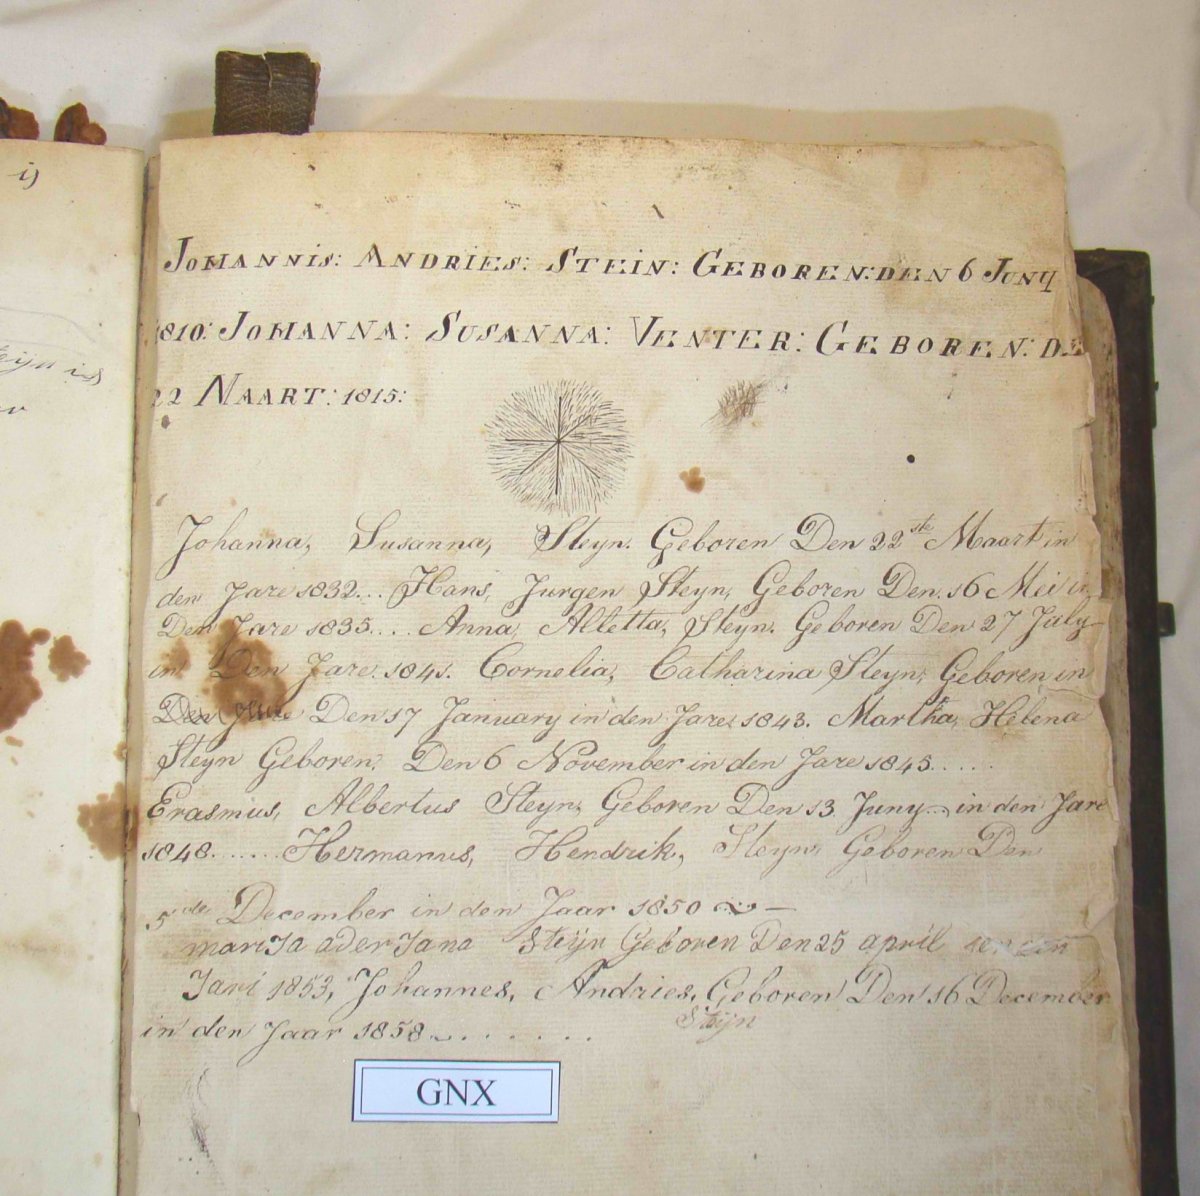 Johannis: Andries: Stein: Geboren: den 6 Juny
1810: Johanna: Susanna: Venter: Geboren: de
22 Maart: 1815:
Johanna, Susanna, Steyn. Geboren Den 22ste Maart in
den Jare 1832... Hans, Jurgen Steyn, Geboren Den 16 Mei in
Den Jare 1835.... Anna, Alletta, Steyn. Geboren Den 27 July
in Den Jare 1841. Cornelia, Catharina Steyn, Geboren in
Den Den 17 January in den Jare 1843. Martha, Helena
Steyn Geboren, Den 6 November in den Jare 1845.....
Erasmus, Albertus Steyn, Geboren Den 13 Juny in den Jare
1848...... Hermanus, Hendrik, Steyn Geboren Den
5de December in den Jaar 1850
mariJa aderJana Steÿn Geboren Den 25 april
Jari 1853, Johannes, Andries, Geboren Den 16 December
Steÿn
in den Jaar 1858
GNX